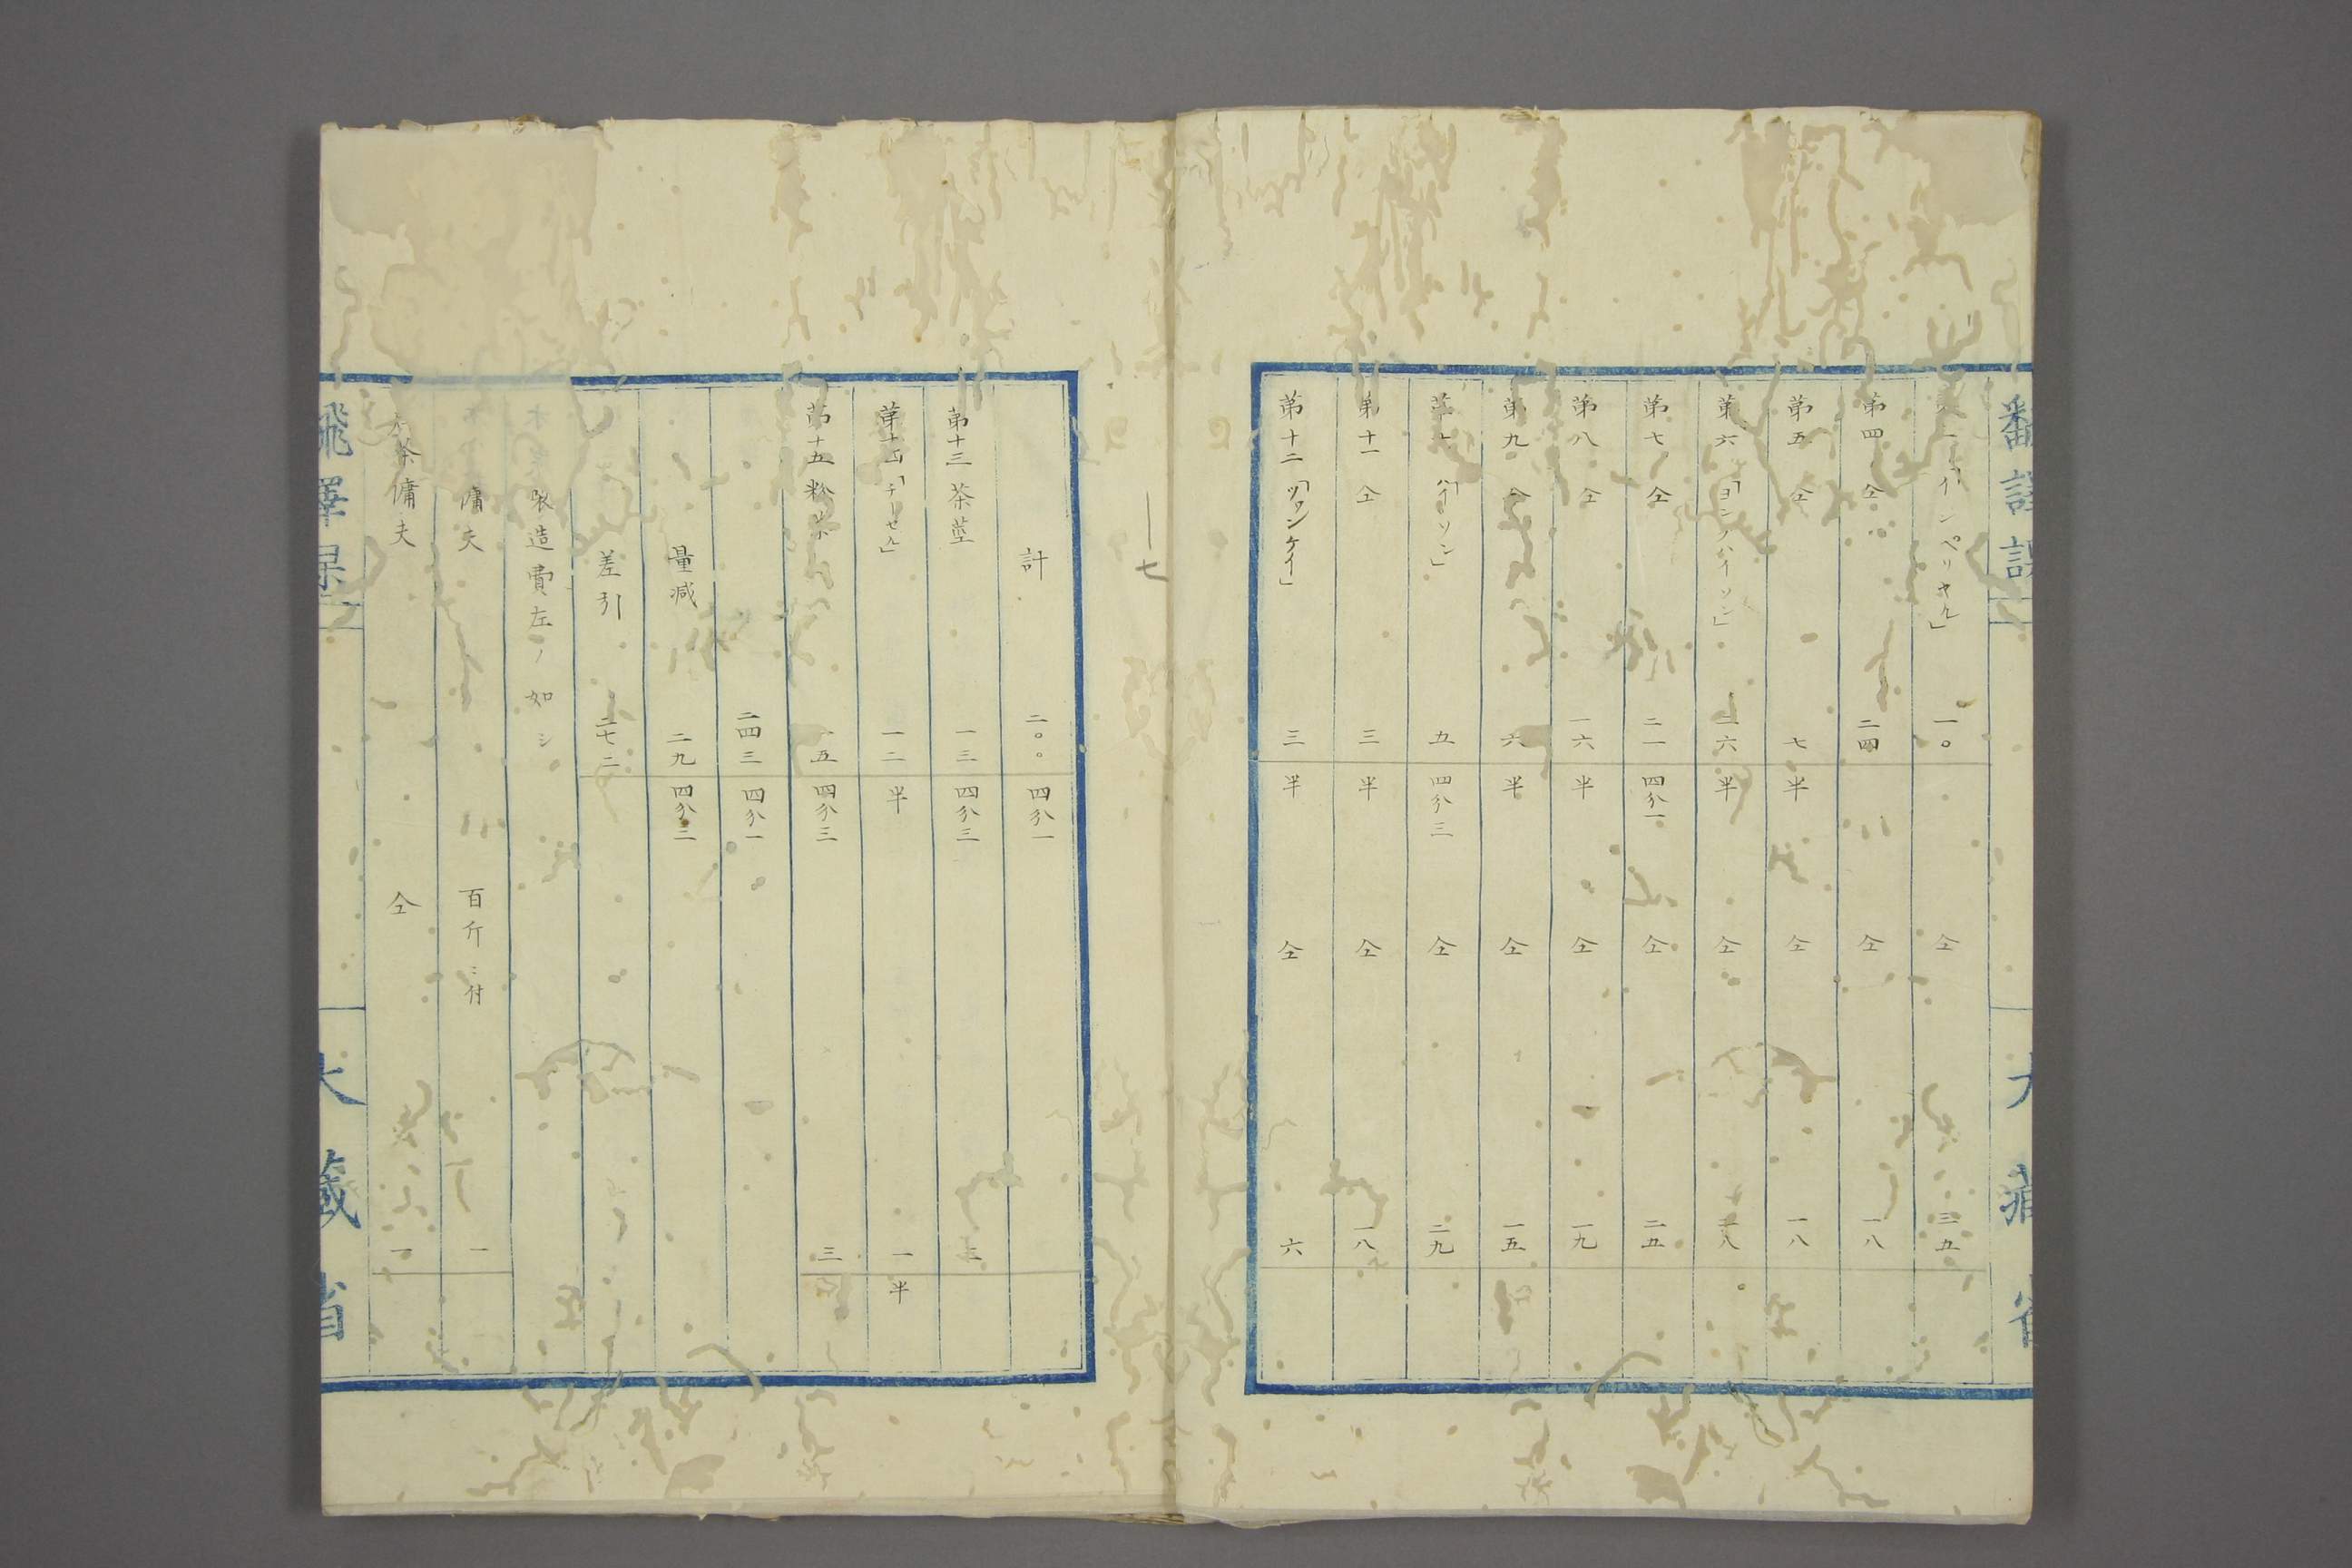 「インペリヤル」 一〇 仝 三五
第四 仝 二四 仝 一八
第五 仝 七 半 仝 一八
第六 「ヨングハイソン」 二六 半 仝 二八
第七 仝 二一 四分一 仝 二五
第八 仝 一六 半 仝 一九
第九 仝 六 半 仝 一五
第十 「ハイソン」 五 四分三 仝 二九
第十一 仝 三 半 仝 一八
第十二 「ツワンケイ」 三 半 仝 六
一七
計 二〇〇 四分一
第十三 茶莖 一三 四分三 二
第十四 「チーセル」 一二 半 一 半
第十五 粉茶 一五 四分三 三
二四三 四分一
量減 二九 四分三
差引 二七二
製造費左ノ如シ
傭夫 百斤ニ付 一
茶傭夫 仝 一
大藏省